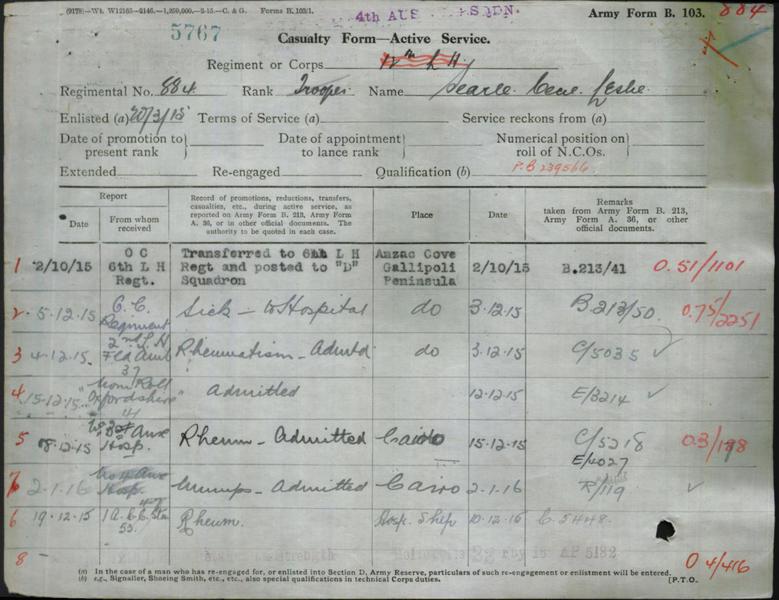 (9178)—Wt. W12165—2146.—1,250,000.—2-15.—C. & G. Forms B. 103/1.
4th AUS SQDN.
Army Form B. 103.
884
5767
Casualty Form—Active Service.
Regiment or Corps 12th L H
Regimental No. 884 Rank Trooper Name Searle Leslie
Enlisted (a) 20/3/15 Terms of Service (a) Service reckons from (a)
Date of promotion to present rank } Date of appointment to lance rank } Numerical position on roll of N.C.Os. }
Extended Re-engaged Qualification (b) P.B 239566
Report
Date
From whom received
Record of promotions, reductions, transfers, casualties, etc., during active service, as reported on Army Form B. 213, Army Form A. 36, or in other official documents. The authority to be quoted in each case.
Place
Date
Remarks
taken from Army Form B. 213, Army Form A. 36, or other official documents.
1 2/10/15 O C 6th L H Regt. Transferred to 6th L H Regt and posted to "D" Squadron Anzac Cove Gallipoli Peninsula 2/10/15 B.213/41 0.51/1101
2 5.12.15 Regiment Sick - to Hospital do 3.12.15 B.213/50 0.75/2251
3 4.12.15 2nd L H Fld Amb Rheumatism - Admtd do 3.12.15 C/5035 ✓
4 15.12.15 37 Nom Roll "Oxfordshire" Admitted 12.12.15 E/3214 ✓
5 18.12.15 Hosp. Rheum - Admitted Cairo 15.12.15 C/5218 0.3/188
E/4027
7 2.1.16 Hosp. Mumps - Admitted Cairo 2.1.16 R/119 ✓
6 19.12.15 Rheum. Hosp. Ship 10.12.15 C.5448.
8 strength 0 4/416
(a) In the case of a man who has re-engaged for, or enlisted into Section D, Army Reserve, particulars of such re-engagement or enlistment will be entered.
(b) e.g., Signaller, Shoeing Smith, etc., etc., also special qualifications in technical Corps duties. [P.T.O.